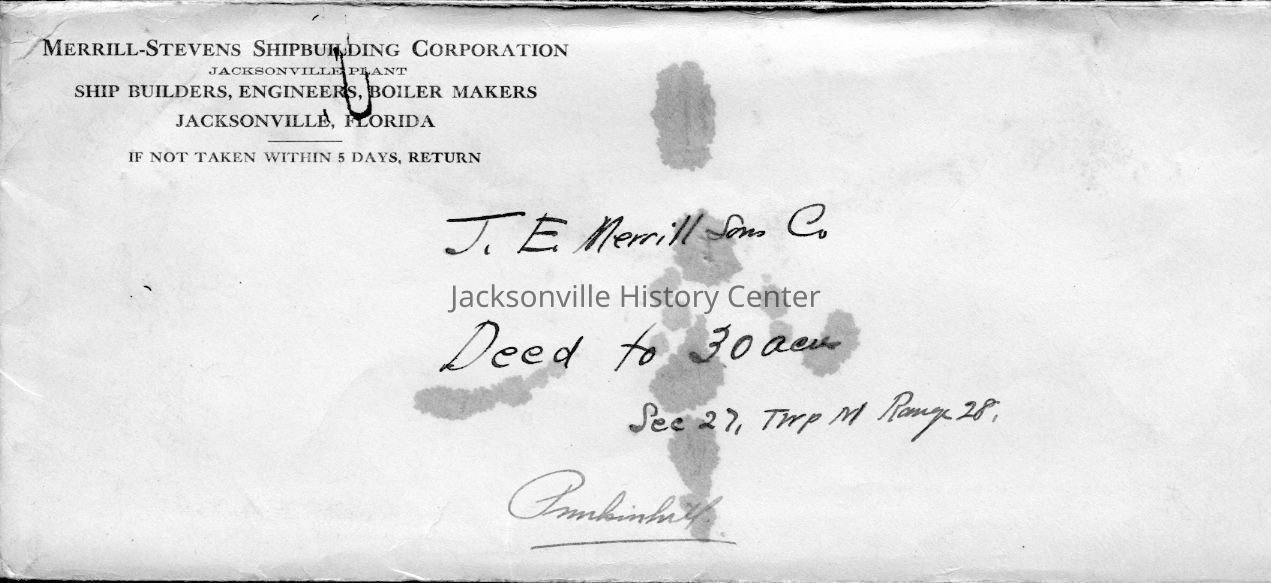 MERRILL-STEVENS SHIPBUILDING CORPORATION
JACKSONVILLE PLANT
SHIP BUILDERS, ENGINEERS, BOILER MAKERS
JACKSONVILLE, FLORIDA
IF NOT TAKEN WITHIN 5 DAYS, RETURN
J. E. Merrill Sons Co
Jacksonville History Center
Deed to 30 acres
Sec 27, Twp Range 28.